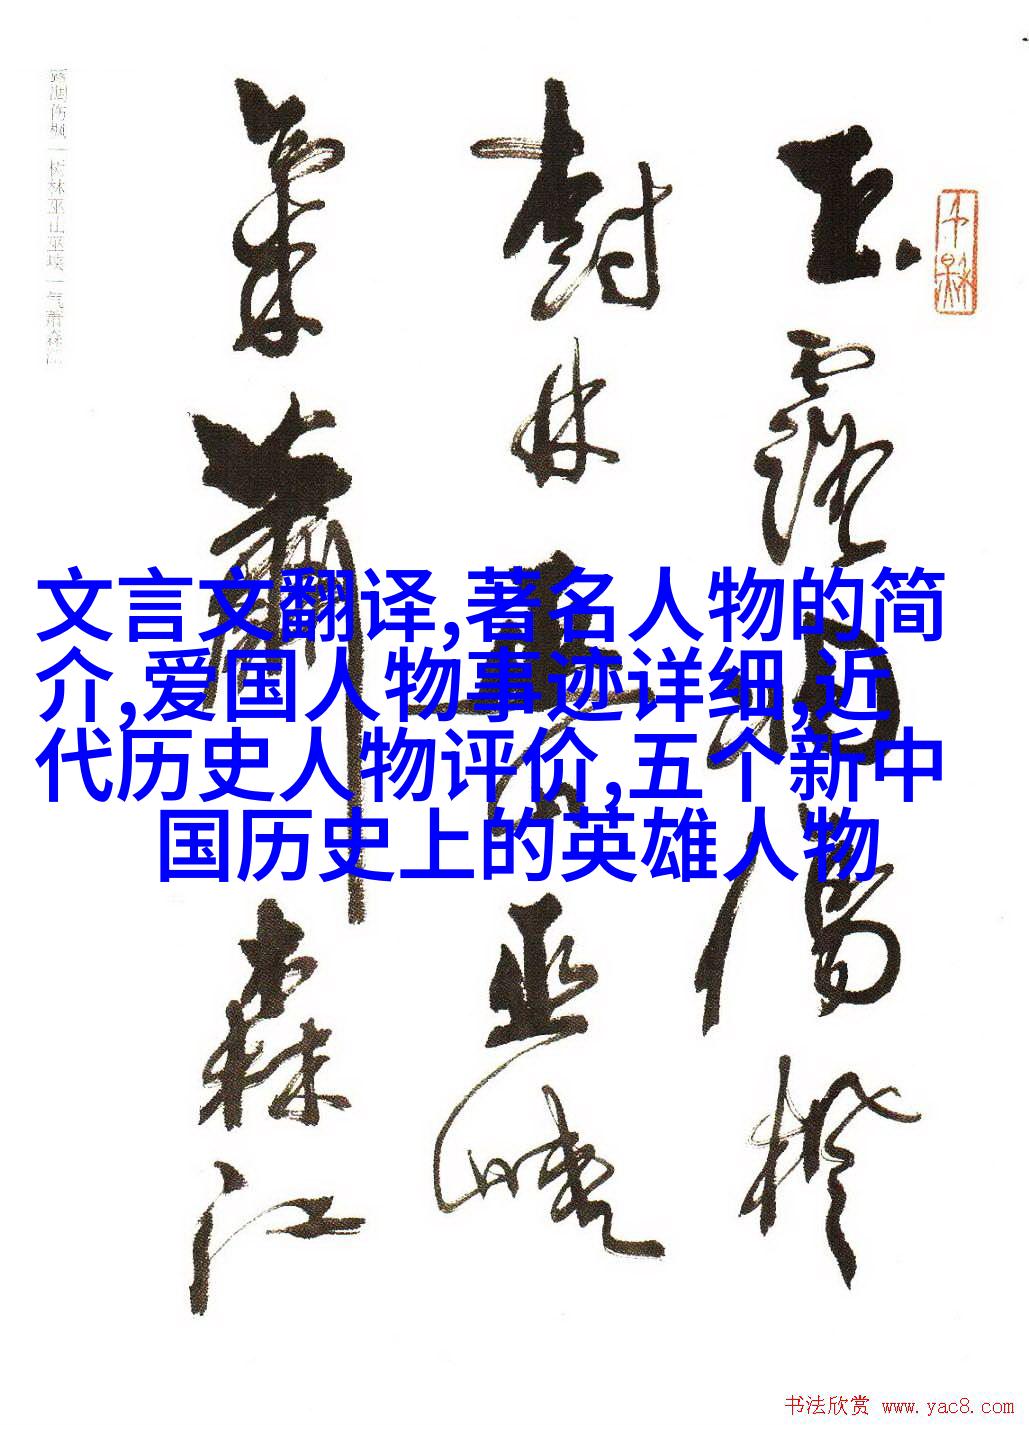 玉露凋伤枫
树林巫山巫峡
气萧森江
文言文翻译,著名人物的简
介,爱国人物事迹详细,近
代历史人物评价,五个新中
国历史上的英雄人物
书法欣赏 www.yac8.com